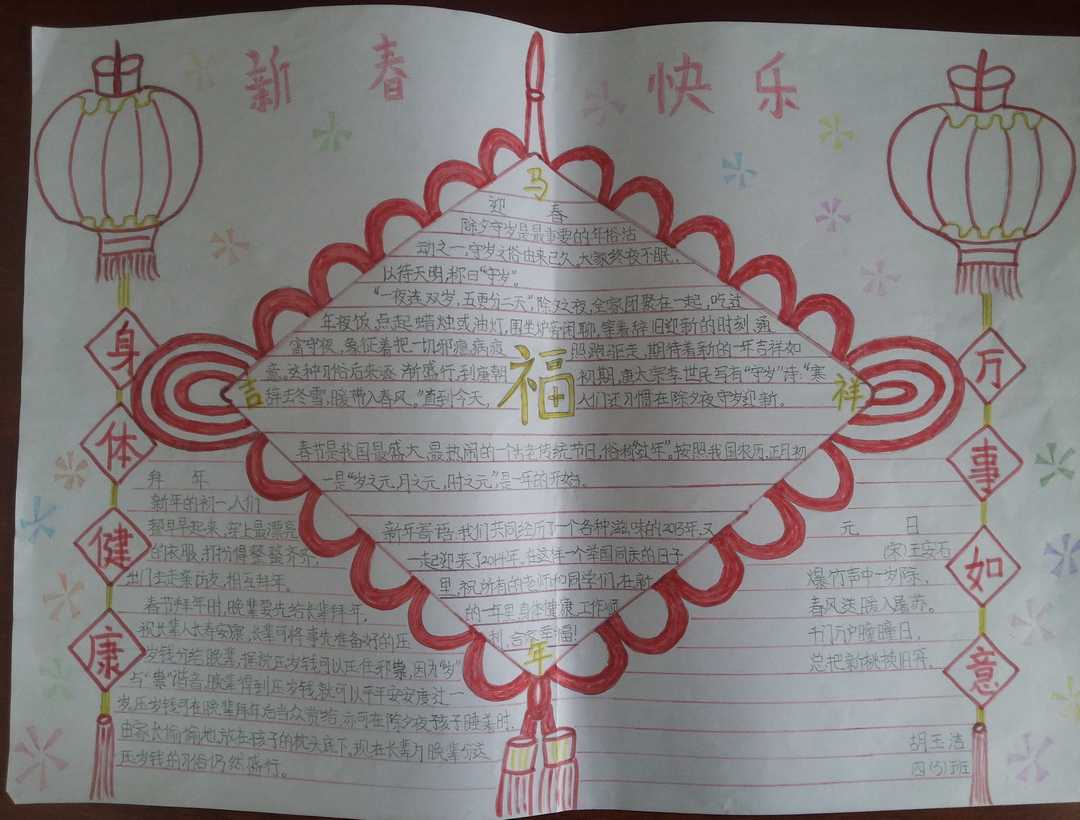 新春快乐
马
迎春
除夕守岁是最重要的年俗活
动之一,守岁之俗由来已久。大家终夜不眠,
以待天明,称曰“守岁”。
“一夜连双岁,五更分二天”除夕夜,全家团聚在一起,吃过
年夜饭,点起蜡烛或油灯,围坐炉旁闲聊,等着辞旧迎新的时刻,通
宵守夜,象征着把一切邪瘟病疫照跑驱走,期待着新的一年吉祥如
意。这种习俗后来逐渐盛行,到唐朝初期,唐太宗李世民写有“守岁”诗:“寒
辞去冬雪,暖带入春风。”直到今天,人们还习惯在除夕夜守岁迎新。
吉
福
祥
春节是我国最盛大、最热闹的一个古老传统节日,俗称“过年”。按照我国农历,正月初
一是“岁之元,月之元,时之元”,是一年的开始。
新年寄语:我们共同经历了一个各种滋味的2013年,又
一起迎来了2014年。在这样一个举国同庆的日子
里,祝所有的老师和同学们,在新
的一年里身体健康,工作顺
利,合家幸福!
年
身体健康
万事如意
拜年
新年的初一,人们
都早早起来,穿上最漂亮
的衣服,打扮得整整齐齐,
出门去走亲访友,相互拜年。
春节拜年时,晚辈要先给长辈拜年,
祝长辈人长寿安康,长辈可将事先准备好的压
岁钱分给晚辈,据说压岁钱可以压住邪祟,因为“岁”
与“祟”谐音,晚辈得到压岁钱就可以平平安安度过一
岁。压岁钱可在晚辈拜年后当众赏给,亦可在除夕夜孩子睡着时,
由家长偷偷地放在孩子的枕头底下,现在长辈为晚辈分送
压岁钱的习俗仍然盛行。
元日
(宋)王安石
爆竹声中一岁除,
春风送暖入屠苏。
千门万户曈曈日,
总把新桃换旧符。
胡玉洁
四(5)班